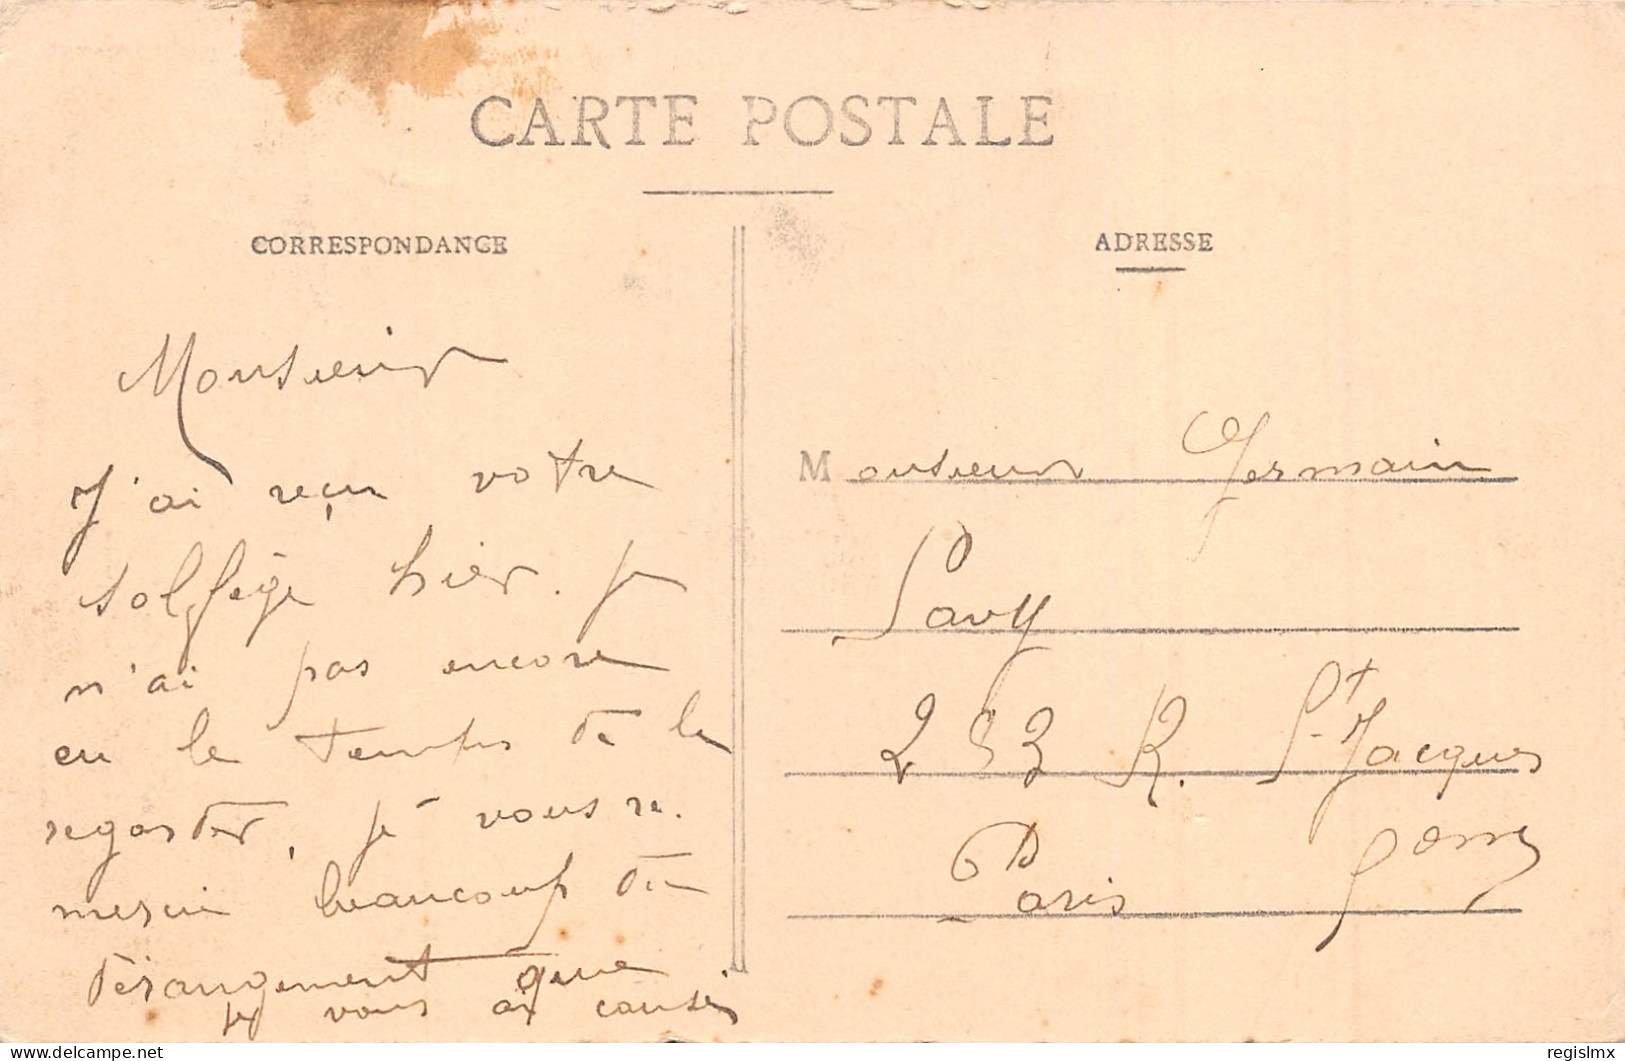 CARTE POSTALE
CORRESPONDANCE
Monsieur
J'ai reçu votre
solfège hier. je
n'ai pas encore
eu le temps de le
regarder, je vous re.
mercie beaucoup du
dérangement que
je vous ai causé
ADRESSE
Monsieur Germain
Savy
253 R. St. Jacques
Paris
delcampe.net
regislmx